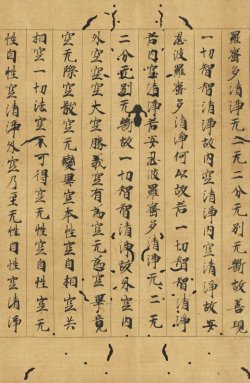 羅蜜多清淨无二无二分无別无斷故善現
一切智智清淨故内空清淨内空清淨故安
忍波羅蜜多清淨何以故若一切智智清淨
若内空清淨若安忍波羅蜜多清淨无二无
二分无別无斷故一切智智清淨故外空内
外空空空大空勝義空有為空无為空畢竟
空无際空散空无變異空本性空自相空共
相空一切法空不可得空无性空自性空无
性自性空清淨外空乃至无性自性空清淨